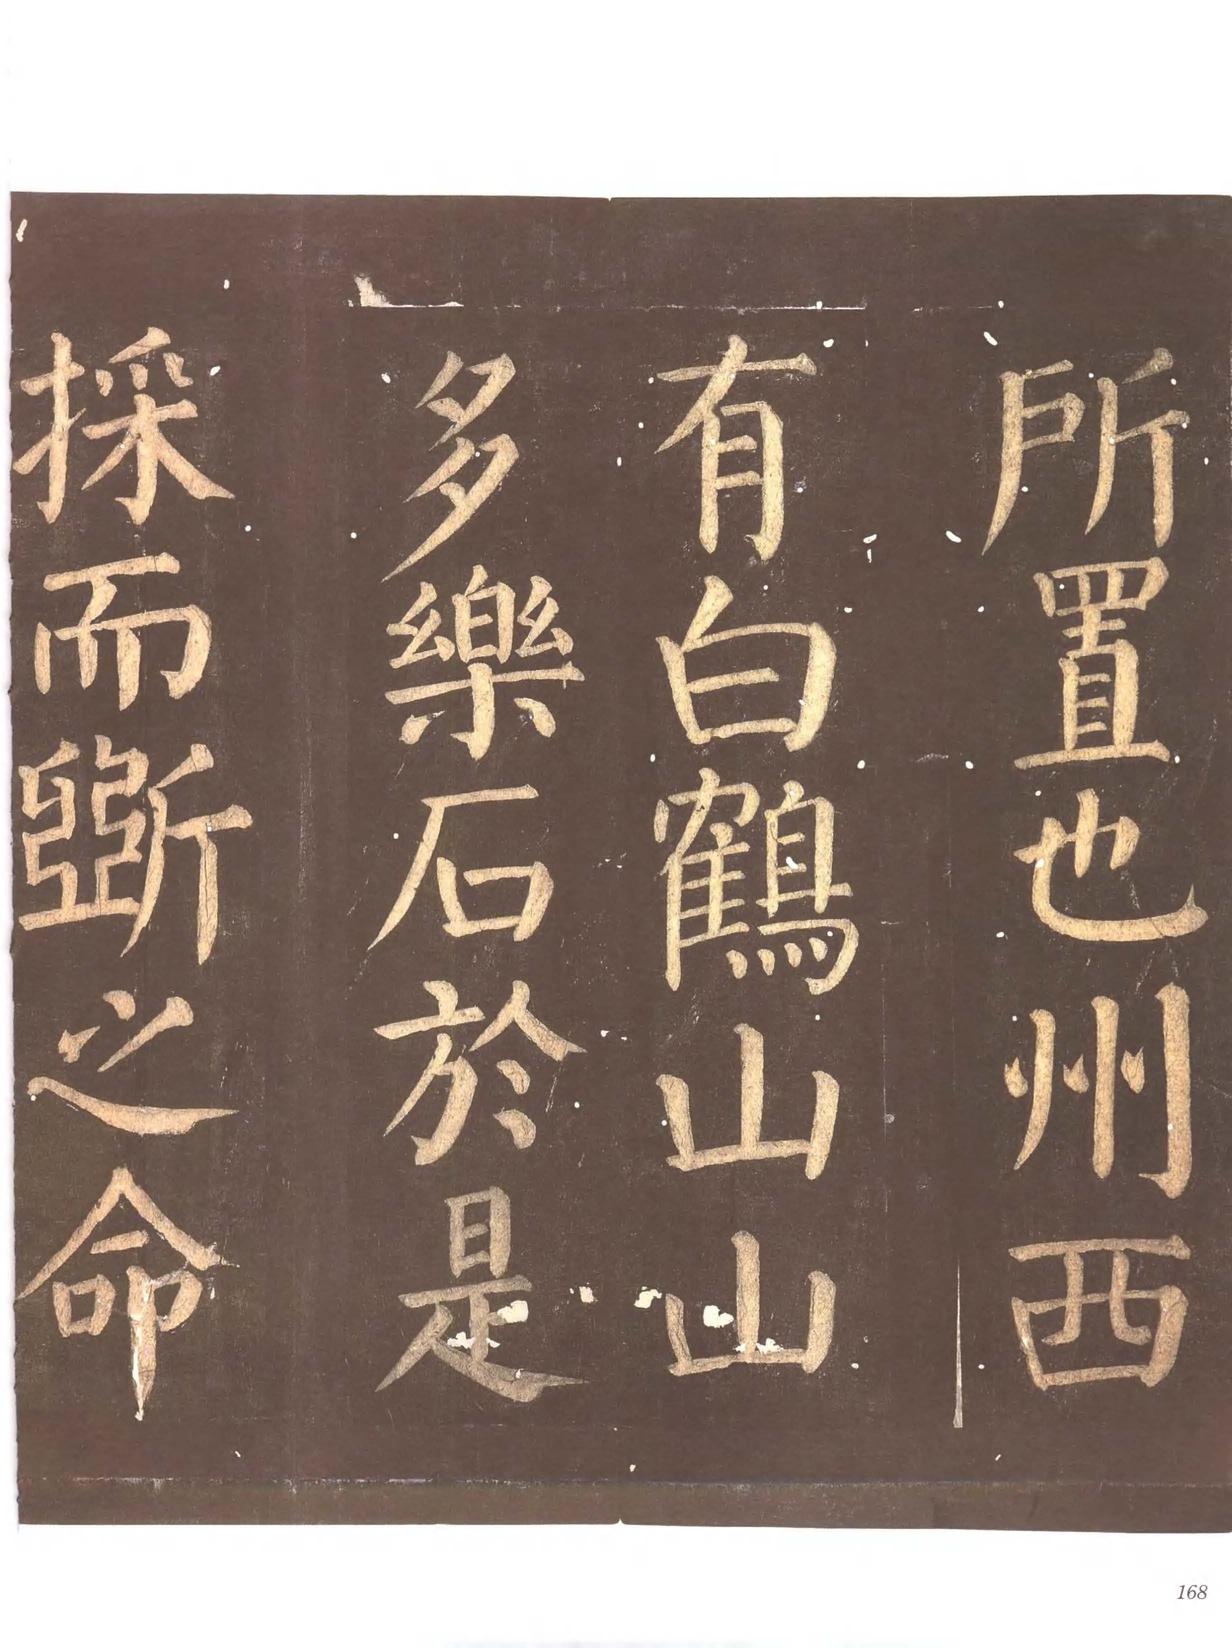 所置也州西
有白鶴山山
多樂石於是
採而斲之命
168